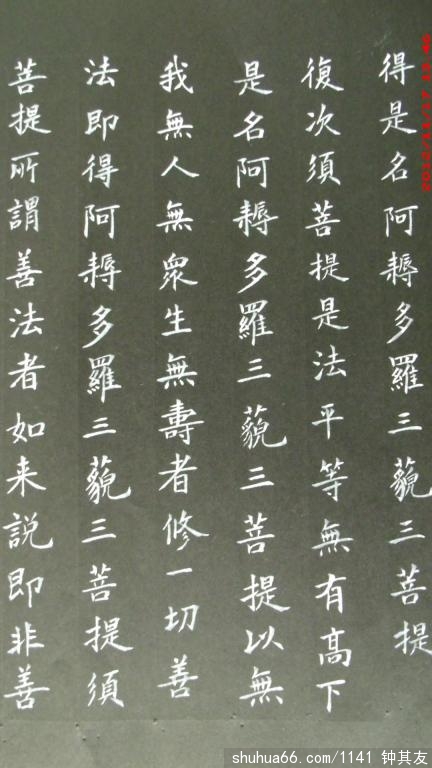 得是名阿耨多羅三藐三菩提
復次須菩提是法平等無有高下
是名阿耨多羅三藐三菩提以無
我無人無衆生無壽者修一切善
法即得阿耨多羅三藐三菩提須
菩提所謂善法者如来説即非善
shuhua66.com/1141 钟其友